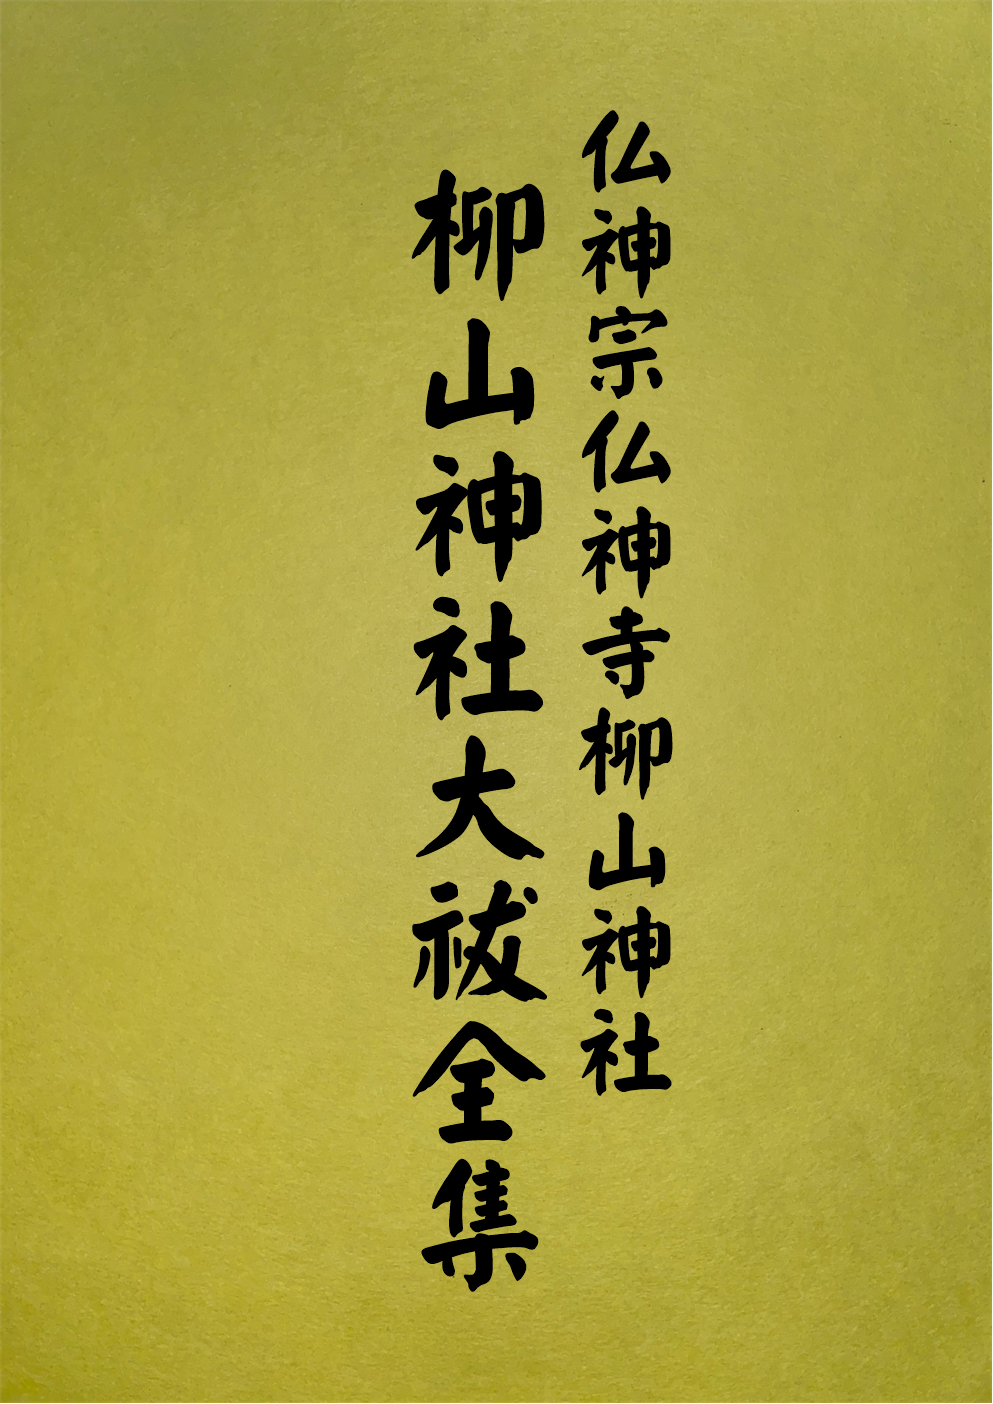 仏神宗仏神寺柳山神社
柳山神社大祓全集